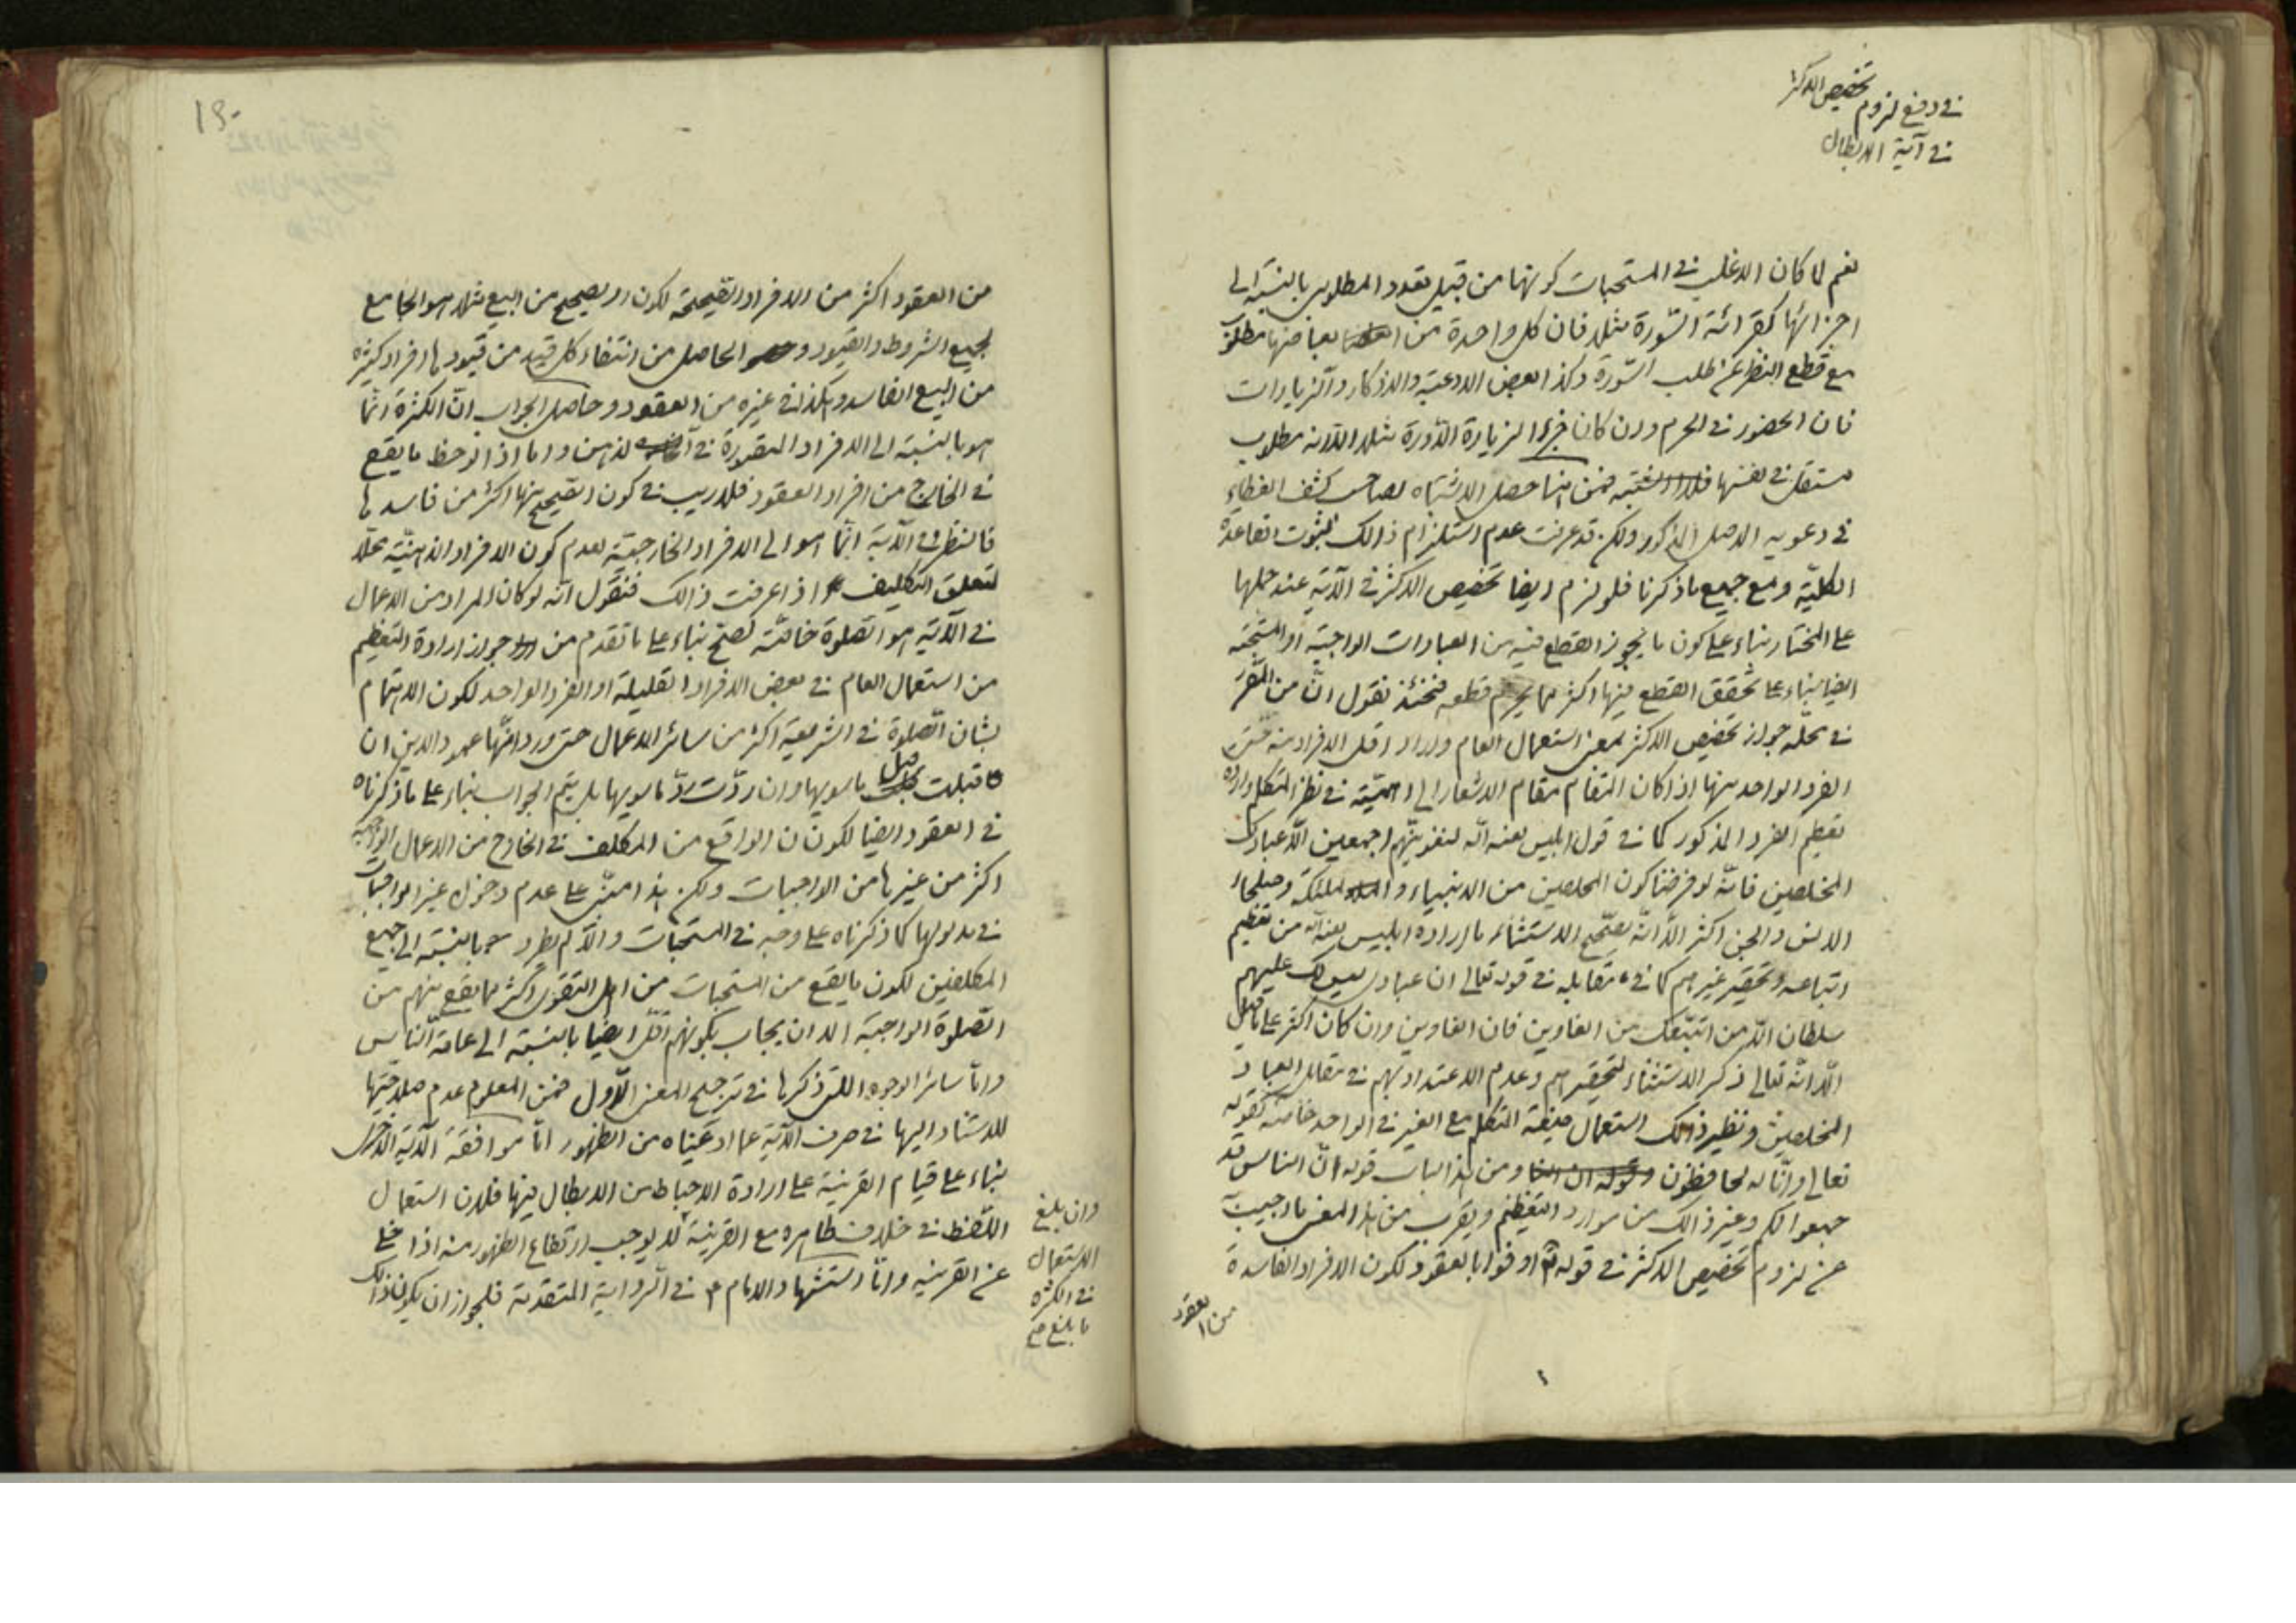 في دفع لزوم تخصيص الاكثر
في آية الابطال
نعم لما كان الاغلب في المستحبات كونها من قبيل تعدد المطلوب بالنسبة الى
اجزائها كقرائة السّورة مثلا فان كل واحدة من ابعاضها مطلوب
مع قطع النظر عن طلب السّورة وكذا بعض الادعية والاذكار والزيارات
فان الحضور في الحرم وان كان جزء الزيارة الدّورة مثلا الّا انه مطلوب
مستقل في نفسها فمن هنا حصل الاشتباه لصاحب كشف الغطاء
في دعويه الاصل المذكور ولكن قد عرفت عدم استلزام ذالك لثبوت القاعدة
الكليّة ومع جميع ما ذكرنا فلو لزم ايضا تخصيص الاكثر في الآية عند حملها
على المختار بناء على كون ما يجوز القطع فيه من العبادات الواجبة او المستحبة
ايضا بناء على تحقق القطع فيها اكثر مما يحرم قطعه فحينئذ نقول انّ من المقرّر
في محلّه جواز تخصيص الاكثر بمعنى استعمال العام وارادة اقل الافراد منه حتى
الفرد الواحد منها اذا كان المقام مقام الاشعار الى اهميّته في نظر المتكلم وارادة
تعظيم الفرد المذكور كما في قول ابليس لعنه اللّه لنغوينّهم اجمعين الّا عبادك
المخلصين فانّه لو فرضنا كون المخلصين من الانبياء والملئكة وصلحاء
الانس والجن اكثر الّا انّه يصحّح الاستثناء ما اراده ابليس لعنه اللّه من تعظيم
اتباعه وتحقير غيرهم كما في مقابله في قوله تعالى ان عبادى ليس لك عليهم
سلطان الّا من اتبّعك من الغاوين فان الغاوين وان كان اكثر على ما قيل
الّا انّه تعالى ذكر الاستثناء لتحقيرهم وعدم الاعتداد بهم في مقابل العباد
المخلصين ونظير ذالك استعمال صيغة المتكلم مع الغير في الواحد خاصّة كقوله
تعالى وانّا له لحافظون ومن هذا الباب قوله انّ الناس قد
جمعوا لكم وغير ذالك من موارد التعظيم ويقرب من هذا المعنى ما اجيب
عن لزوم تخصيص الاكثر في قوله تع اوفوا بالعقود لكون الافراد الفاسدة
من العقود
من العقود اكثر من الافراد الصّحيحة لكون الصحيح من البيع مثلا هو الجامع
لجميع الشروط والقيود والحاصل من انتفاء كل قيد من قيودها افراد كثيرة
من البيع الفاسد وهكذا في غيره من العقود وحاصل الجواب انّ الكثرة انّما
هو بالنسبة الى الافراد المتصورة في الذهن واما اذا لوحظ ما يقع
في الخارج من افراد العقود فلا ريب في كون الصحيح منها اكثر من فاسدها
فالنظر في الآية انّما هو الى الافراد الخارجيّة لعدم كون الافراد الذهنيّة محلّا
لتعلق التكليف اذا عرفت ذالك فنقول انّه لو كان المراد من الاعمال
في الآية هو الصّلوة خاصّة لصحّ بناء على ما تقدم من جواز ارادة التعظيم
من استعمال العام في بعض الافراد القليلة او الفرد الواحد لكون الاهتمام
بشان الصّلوة في الشريعة اكثر من سائر الاعمال حتى ورد انّها عمود الدين ان
قبلت قبل ما سويها وان ردّت ردّ ما سويها بل يتم الجواب بناء على ما ذكرناه
في العقود ايضا لكون الواقع من المكلف في الخارج من الاعمال الواجبة
اكثر من غيرها من الواجبات ولكن هذا مبنى على عدم دخول غير الواجبات
في مدلولها كما ذكرناه على وجه في المستحبات والّا لم يطرد بالنسبة الى جميع
المكلفين لكون ما يقع من المستحبات من اهل التقوى اكثر مما يقع منهم من
الصّلوة الواجبة الا ان يجاب بكونهم اقلّ ايضا بالنسبة الى عامة النّاس
وامّا سائر الوجوه اللتى ذكرها في ترجيح المعنى الاوّل فمن المعلوم عدم صلاحيّتها
للاستناد اليها في صرف الآية عما ادعيناه من الظهور امّا موافقة الآية الاخرى
بناء على قيام القرينة على ارادة الاحباط من الابطال فيها فلان استعمال
اللّفظ في خلاف ظاهره مع القرينة لا يوجب ارتفاع الظهور منه اذا خلى
عن القرينه وامّا استشهاد الامام ع في الرّواية المتقدمة فلجواز ان يكون ذالك
وان بلغ
الاستعمال
في الكثرة
ما بلغ صح